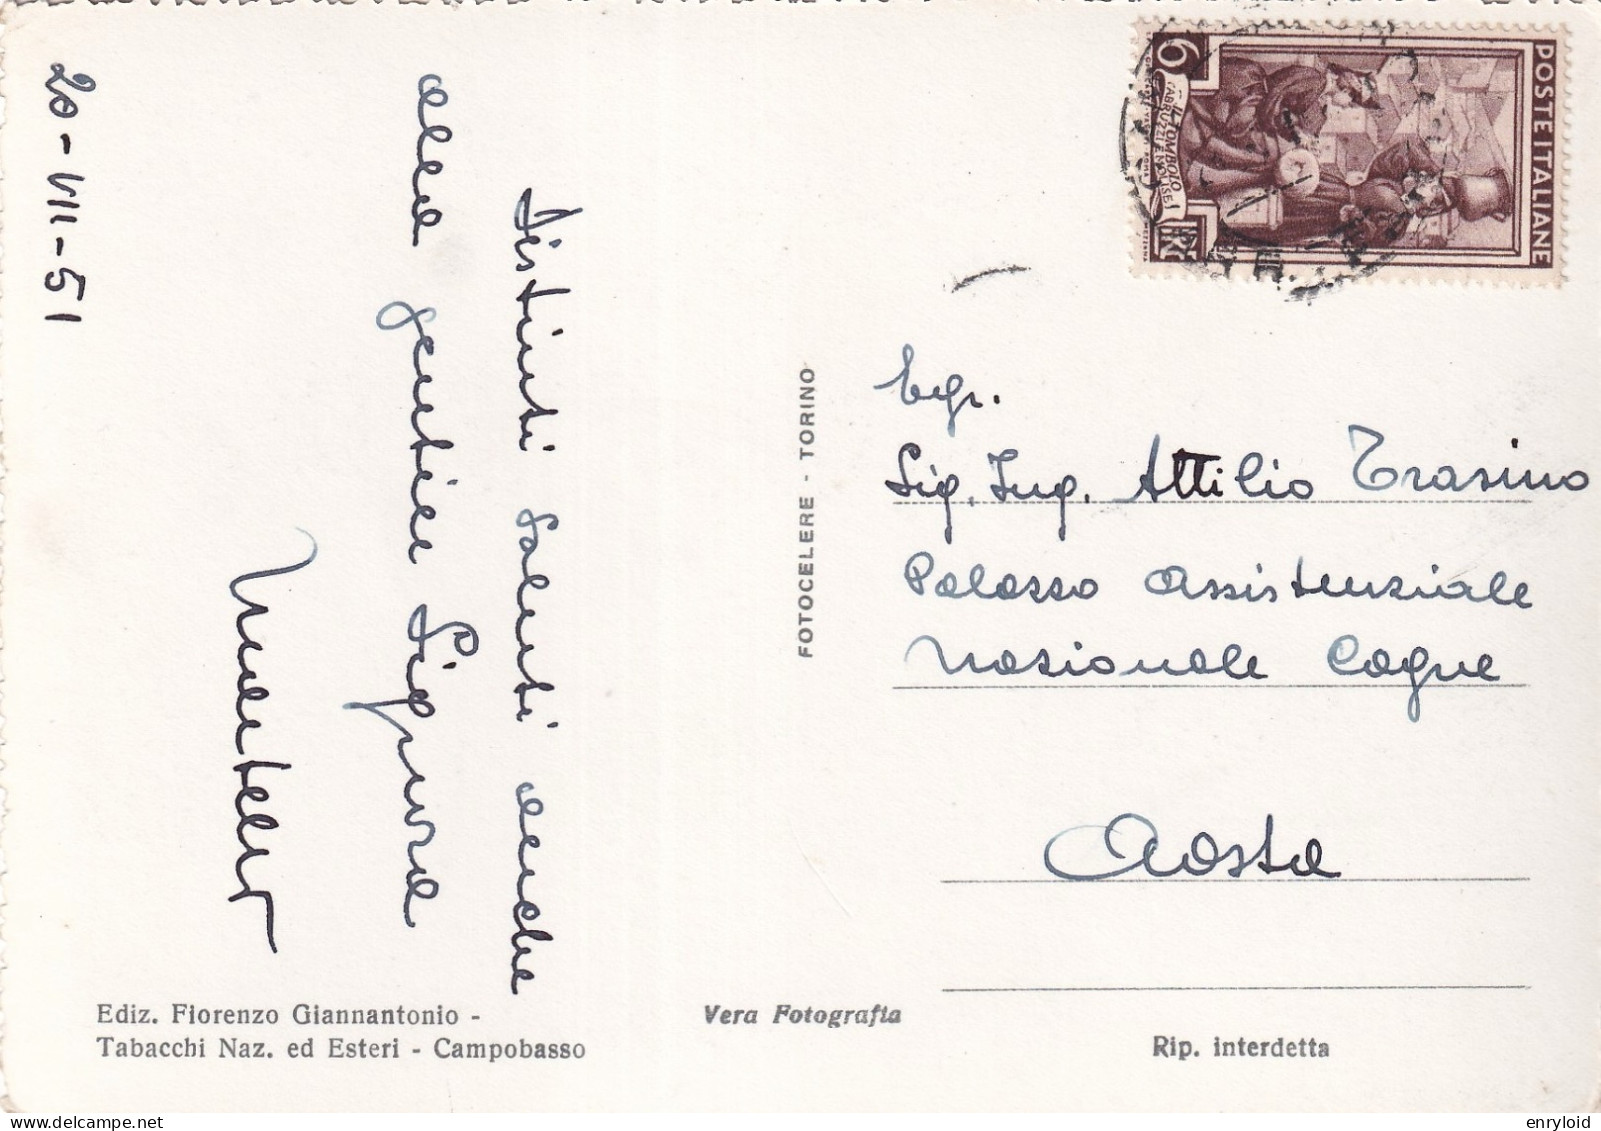 20-VII-51
Distinti saluti anche
alla gentile Signora
POSTE ITALIANE
6
IL TOMBOLO
(ABRUZZI E MOLISE)
FOTOCELERE - TORINO
Egr.
Sig. Ing. Attilio Trasino
Palazzo Assistenziale
Nazionale Cogne
Aosta
Ediz. Fiorenzo Giannantonio -
Tabacchi Naz. ed Esteri - Campobasso
Vera Fotografia
Rip. interdetta
delcampe.net
enryloid